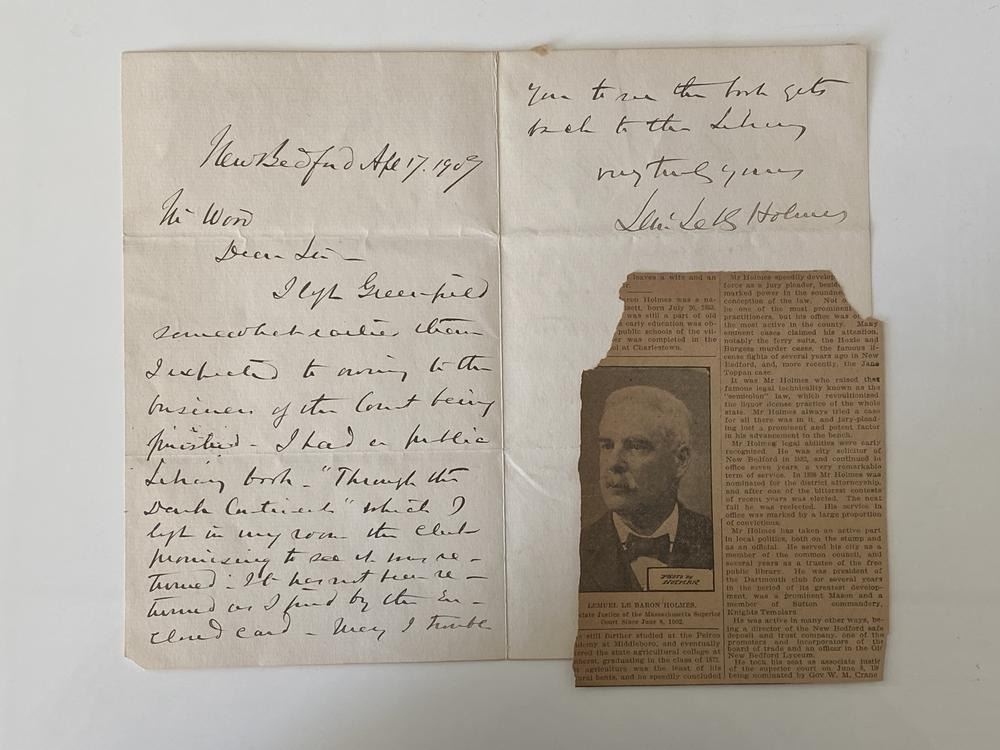 New Bedford Apl 17. 1909
Mr Ward
Dear Sir –
I left Greenfield
somewhat earlier than
I expected to owing to the
business of the Court being
finished – I had a public
Library book – "Through the
Dark Continent" which I
left in my room the clerk
promising to see it was re-
turned – It has not been re-
turned as I find by the En-
closed card – May I trouble
you to see the book gets
back to the Library
very truly yours
Lem. LeB Holmes
leaves a wife and an
aron Holmes was a na-
sett, born July 26, 1853,
was still a part of old
early education was ob-
public schools of the vil-
er was completed in the
l at Charlestown.
PHOTO BY
HOLMER
LEMUEL LE BARON HOLMES,
state Justice of the Massachusetts Superior
Court Since June 8, 1902.
still further studied at the Peirce
demy at Middleboro, and eventually
ered the state agricultural college at
herst, graduating in the class of 1872.
agriculture was the least of his
ural bents, and he speedily concluded
Mr Holmes speedily develop
force as a jury pleader, besid
marked power in the soundne
conception of the law. Not o
he one of the most prominent
practitioners, but his office was o
the most active in the county. Many
eminent cases claimed his attention,
notably the ferry suits, the Hoxie and
Burgess murder cases, the famous li-
cense fights of several years ago in New
Bedford, and, more recently, the Jane
Toppan case.
It was Mr Holmes who raised that
famous legal technicality known as the
"semicolon" law, which revoultionized
the liquor dcense practice of the whole
state. Mr Holmes always tried a case
for all there was in it, and jury-plead-
ing lost a prominent and potent factor
in his advancement to the bench.
Mr Holmes' legal abilities were early
recognized. He was city solicitor of
New Bedford in 1882, and continued in
office seven years, a very remarkable
term of service. In 1898 Mr Holmes was
nominated for the district attorneyship,
and after one of the bitterest contests
of recent years was elected. The next
fall he was reelected. His service in
office was marked by a large proportion
of convictions.
Mr Holmes has taken an active part
in local politics, both on the stump and
as an official. He served his city as a
member of the common council, and
several years as a trustee of the free
public library. He was president of
the Dartmouth club for several years
in the period of its greatest develop-
ment, was a prominent Mason and a
member of Sutton commandery,
Knights Templars.
He was active in many other ways, be-
ing a director of the New Bedford safe
deposit and trust company, one of the
promoters and incorporators of the
board of trade and an officer in the Old
New Bedford Lyceum.
He took his seat as associate justic
of the superior court on June 8, 190
being nominated by Gov W. M. Crane